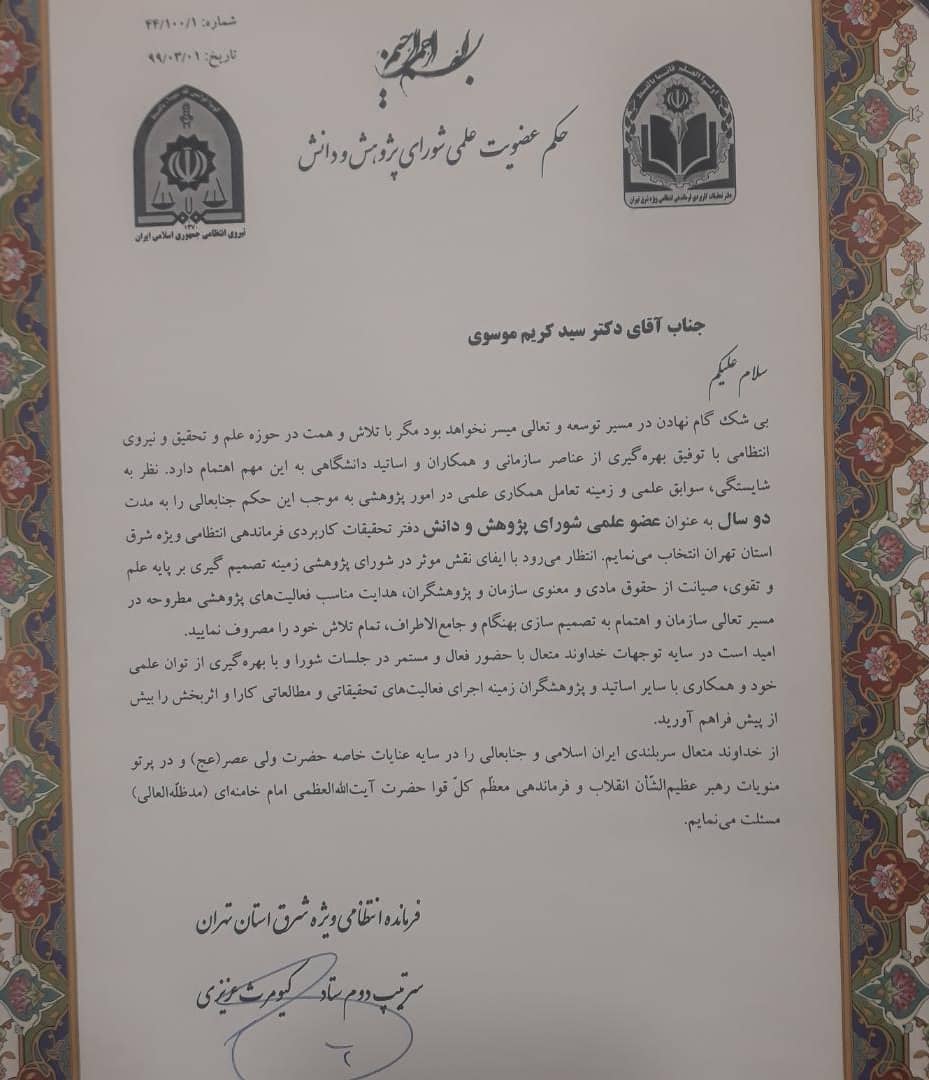 شماره: ۴۴/۱۰۰/۱
تاریخ: ۹۹/۰۳/۰۱
بسم الله الرحمن الرحیم
حکم عضویت علمی شورای پژوهش و دانش
دفتر تحقیقات کاربردی فرماندهی انتظامی ویژه شرق تهران
۱۳۷۰
نیروی انتظامی جمهوری اسلامی ایران
جناب آقای دکتر سید کریم موسوی
سلام علیکم
بی شک گام نهادن در مسیر توسعه و تعالی میسر نخواهد بود مگر با تلاش و همت در حوزه علم و تحقیق و نیروی
انتظامی با توفیق بهره‌گیری از عناصر سازمانی و همکاران و اساتید دانشگاهی به این مهم اهتمام دارد. نظر به
شایستگی، سوابق علمی و زمینه تعامل همکاری علمی در امور پژوهشی به موجب این حکم جنابعالی را به مدت
دو سال به عنوان عضو علمی شورای پژوهش و دانش دفتر تحقیقات کاربردی فرماندهی انتظامی ویژه شرق
استان تهران انتخاب می‌نمایم. انتظار می‌رود با ایفای نقش موثر در شورای پژوهشی زمینه تصمیم گیری بر پایه علم
و تقوی، صیانت از حقوق مادی و معنوی سازمان و پژوهشگران، هدایت مناسب فعالیت‌های پژوهشی مطروحه در
مسیر تعالی سازمان و اهتمام به تصمیم سازی بهنگام و جامع‌الاطراف، تمام تلاش خود را مصروف نمایید.
امید است در سایه توجهات خداوند متعال با حضور فعال و مستمر در جلسات شورا و با بهره‌گیری از توان علمی
خود و همکاری با سایر اساتید و پژوهشگران زمینه اجرای فعالیت‌های تحقیقاتی و مطالعاتی کارا و اثربخش را بیش
از پیش فراهم آورید.
از خداوند متعال سربلندی ایران اسلامی و جنابعالی را در سایه عنایات خاصه حضرت ولی عصر(عج) و در پرتو
منویات رهبر عظیم‌الشّأن انقلاب و فرماندهی معظّم کلّ قوا حضرت آیت‌الله‌العظمی امام خامنه‌ای (مدظلّه‌العالی)
مسئلت می‌نمایم.
فرمانده انتظامی ویژه شرق استان تهران
سرتیپ دوم ستاد کیومرث عزیزی